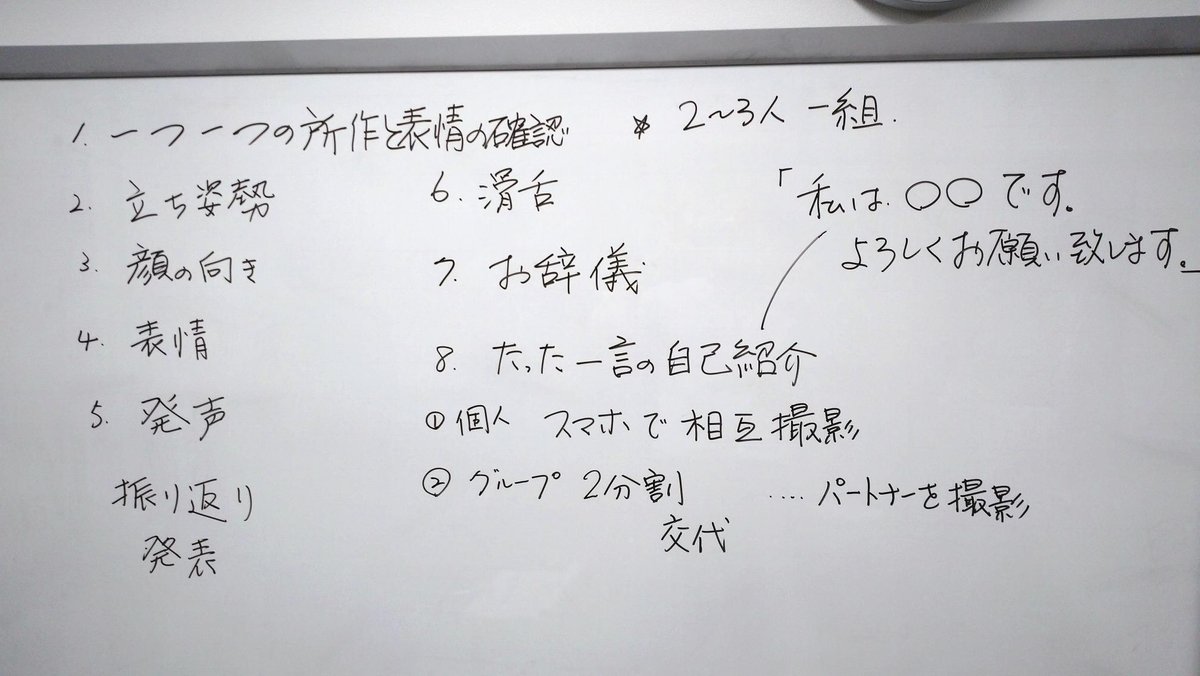 1. 一つ一つの所作と表情の確認
* 2〜3人 一組.
2. 立ち姿勢
3. 顔の向き
4. 表情
5. 発声
振り返り
発表
6. 滑舌
7. お辞儀
8. たった一言の自己紹介
「私は ○○です。
よろしくお願い致します。」
① 個人 スマホで相互撮影
② グループ 2分割 ‥‥ パートナーを撮影
交代